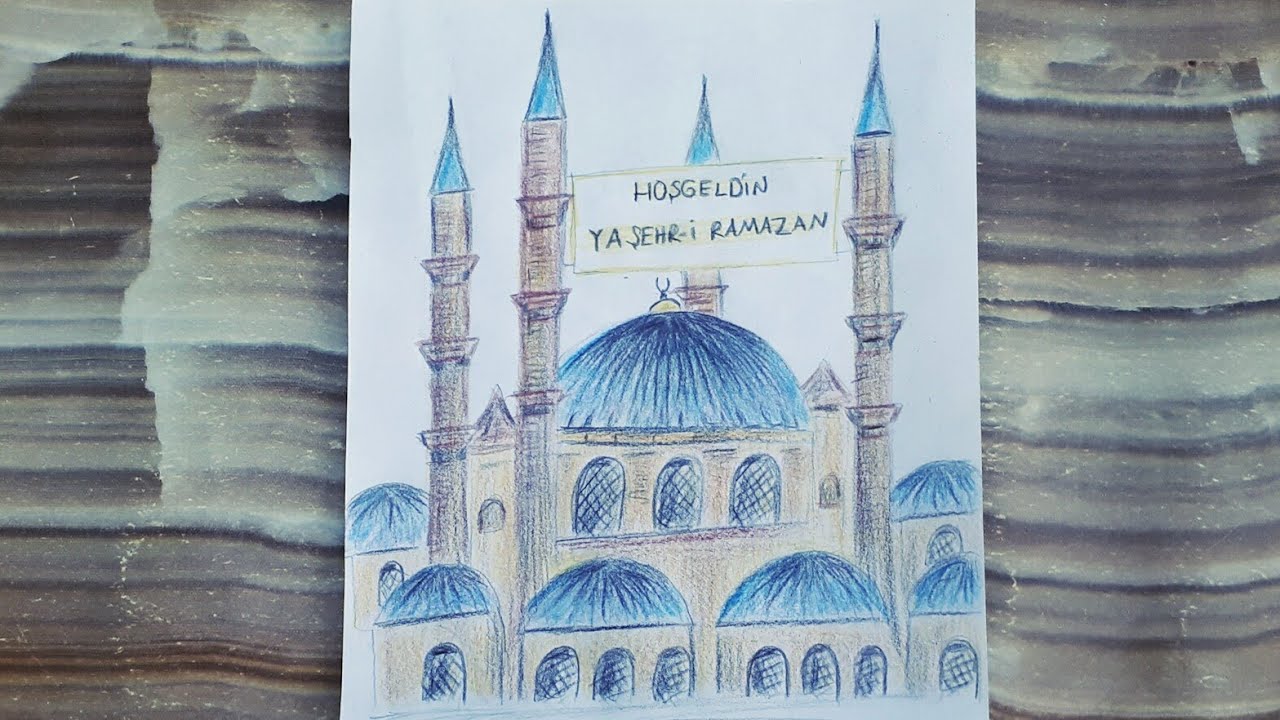 HOŞGELDİN
YA ŞEHR-İ RAMAZAN